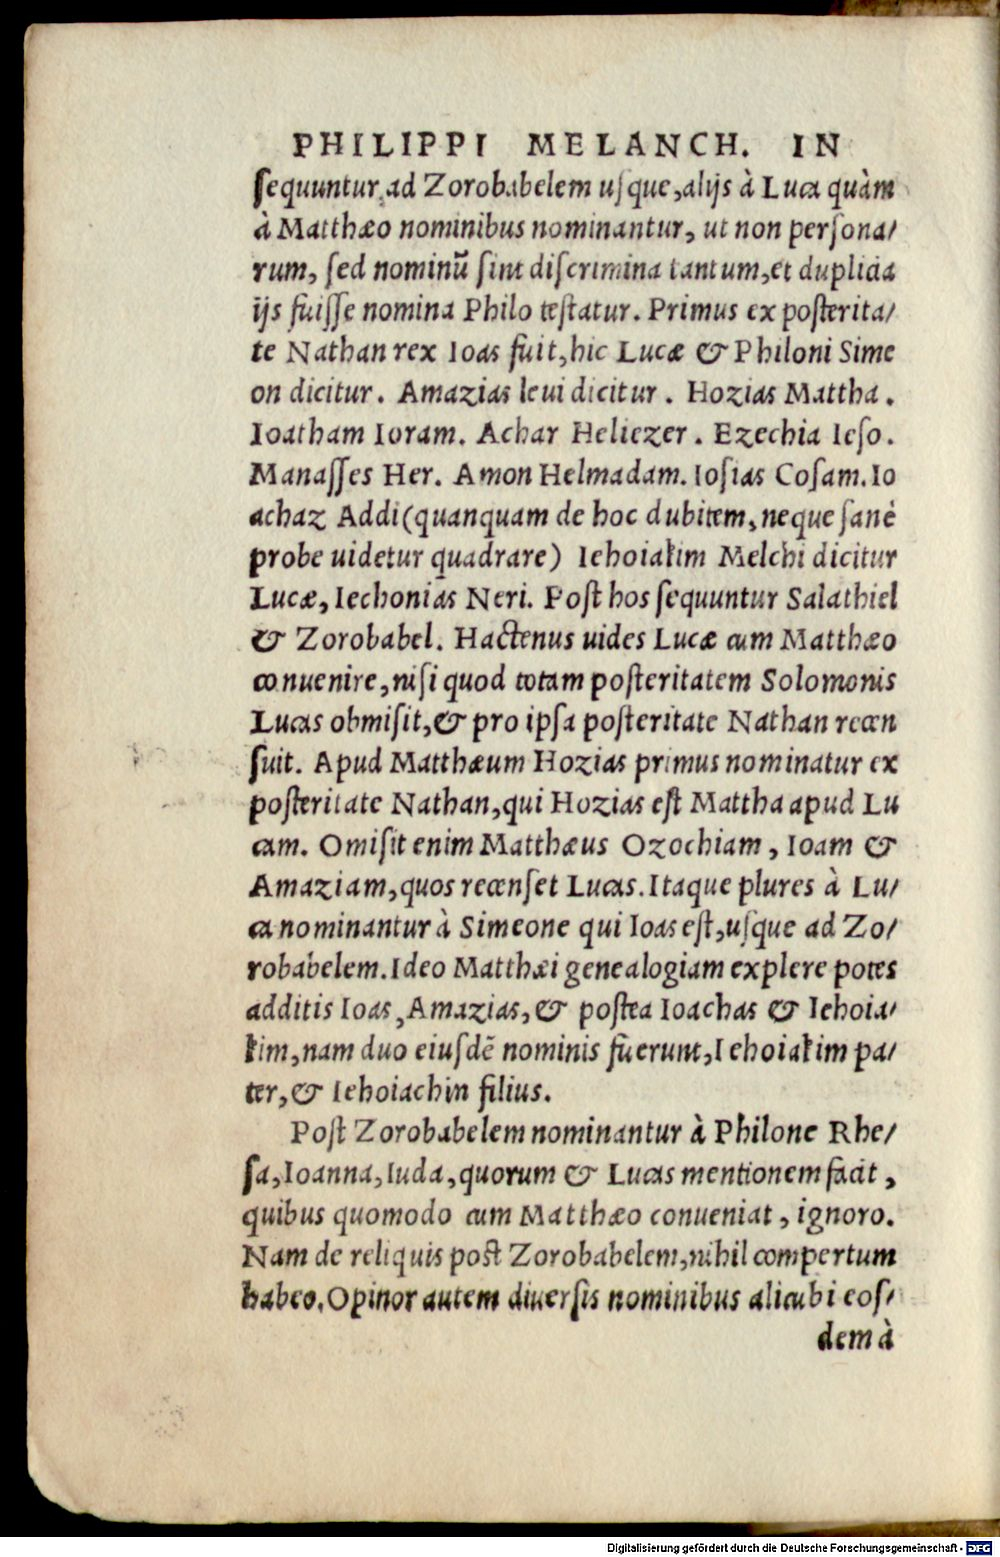 PHILIPPI MELANCH. IN
sequuntur, ad Zorobabelem usque, alijs à Luca quàm
à Matthæo nominibus nominantur, ut non persona/
rum, sed nominũ sint discrimina tantum, et duplicia
ijs fuisse nomina Philo testatur. Primus ex posterita/
te Nathan rex Ioas fuit, hic Lucæ & Philoni Sime
on dicitur. Amazias leui dicitur. Hozias Mattha.
Ioatham Ioram. Achar Heliezer. Ezechia Ieso.
Manasses Her. Amon Helmadam. Iosias Cosam. Io
achaz Addi (quanquam de hoc dubitem, neque sanè
probe uidetur quadrare) Iehoiakim Melchi dicitur
Lucæ, Iechonias Neri. Post hos sequuntur Salathiel
& Zorobabel. Hactenus uides Lucæ cum Matthæo
conuenire, nisi quod totam posteritatem Solomonis
Lucas obmisit, & pro ipsa posteritate Nathan recen
suit. Apud Matthæum Hozias primus nominatur ex
posteritate Nathan, qui Hozias est Mattha apud Lu
cam. Omisit enim Matthæus Ozochiam, Ioam &
Amaziam, quos recenset Lucas. Itaque plures à Lu/
ca nominantur à Simeone qui Ioas est, usque ad Zo/
robabelem. Ideo Matthæi genealogiam explere potes
additis Ioas, Amazias, & postea Ioachas & Iehoia/
kim, nam duo eiusdẽ nominis fuerunt, Iehoiakim pa/
ter, & Iehoiachin filius.
Post Zorobabelem nominantur à Philone Rhe/
sa, Ioanna, Iuda, quorum & Lucas mentionem facit,
quibus quomodo cum Matthæo conueniat, ignoro.
Nam de reliquis post Zorobabelem, nihil compertum
habeo. Opinor autem diuersis nominibus alicubi eos/
dem à
Digitalisierung gefördert durch die Deutsche Forschungsgemeinschaft - DFG